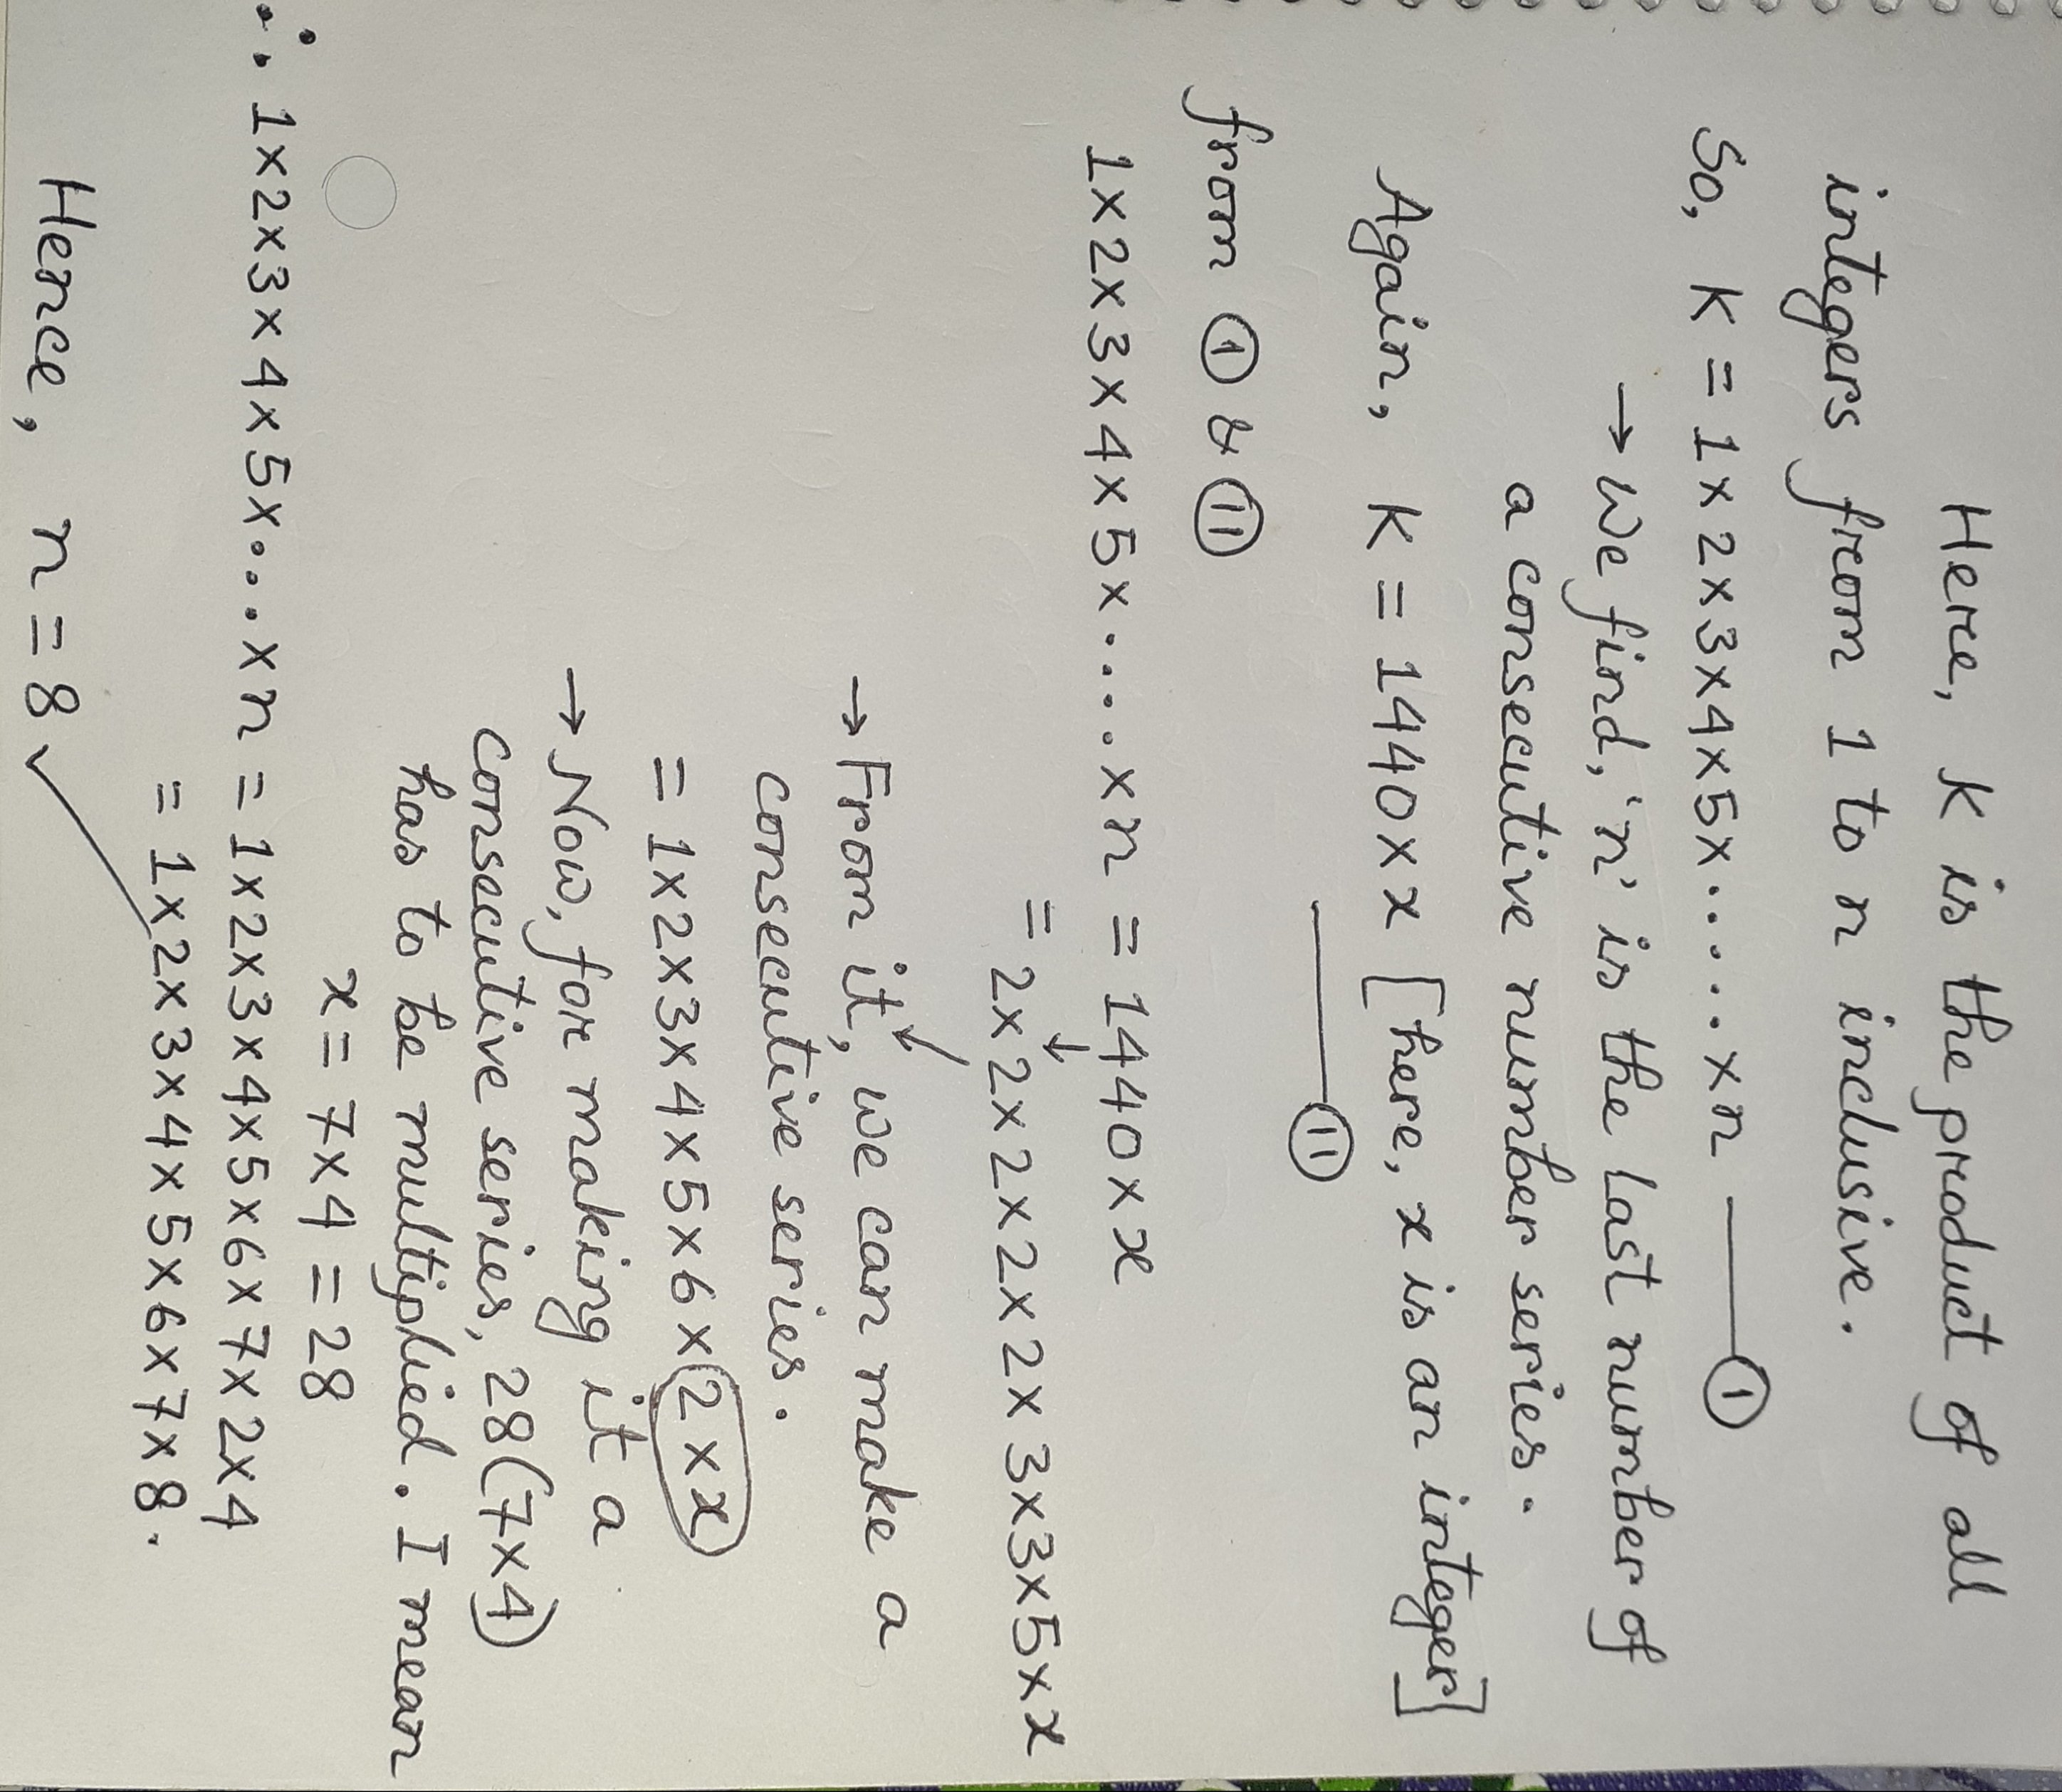 Here, K is the product of all
integers from 1 to n inclusive.
So, K = 1×2×3×4×5×.....×n —— (I)
→ We find, 'n' is the last number of
a consecutive number series.
Again, K = 1440×x [here, x is an integer]
—— (II)
from (I) & (II)
1×2×3×4×5×....×n = 1440×x
= 2×2×2×2×2×3×3×5×x
→ From it, we can make a
consecutive series.
= 1×2×3×4×5×6×(2×x)
→ Now, for making it a
consecutive series, 28(7×4)
has to be multiplied. I mean
x = 7×4 = 28
∴ 1×2×3×4×5×...×n = 1×2×3×4×5×6×7×2×4
= 1×2×3×4×5×6×7×8.
Hence, n = 8 ✓